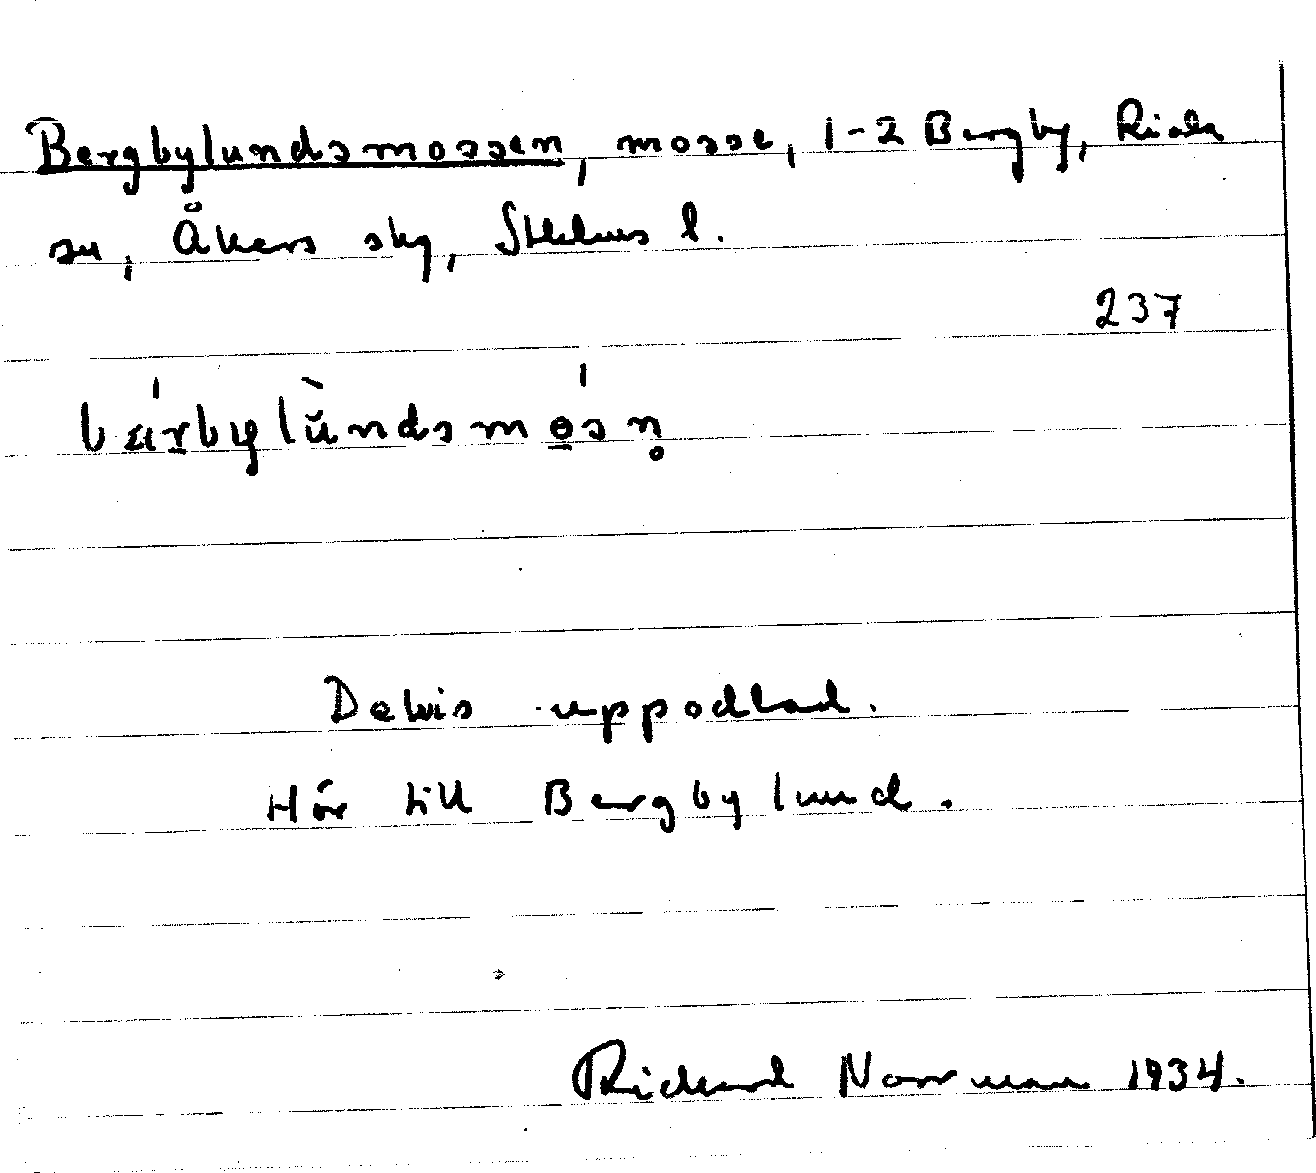 Bergbylundsmossen, mosse, 1-2 Bergby, Riala
sn, Åkers skg, Sthlms l.
237
bärbylùndsmosn̥
Delvis uppodlad.
Hör till Bergbylund.
Richard Norrman 1934.